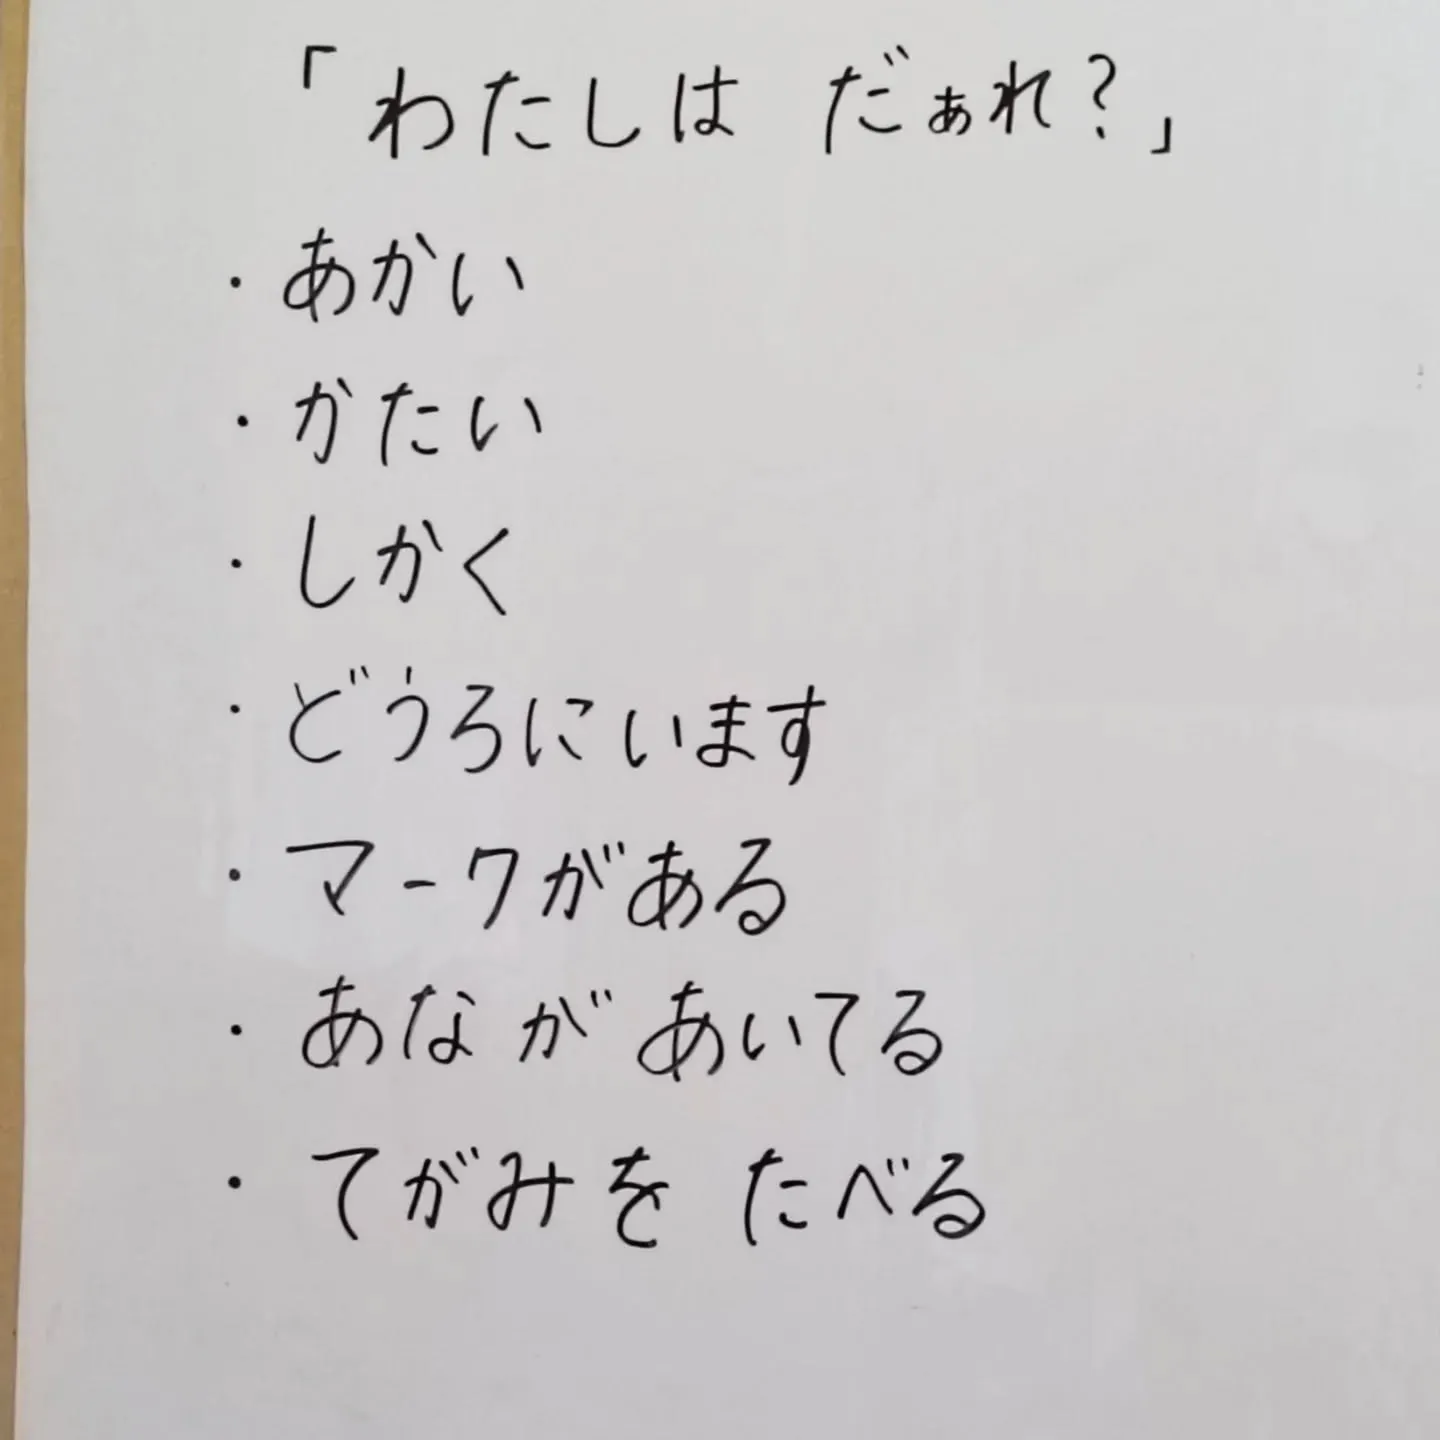 「わたしは だぁれ?」
・あかい
・かたい
・しかく
・どうろにいます
・マークがある
・あながあいてる
・てがみを たべる